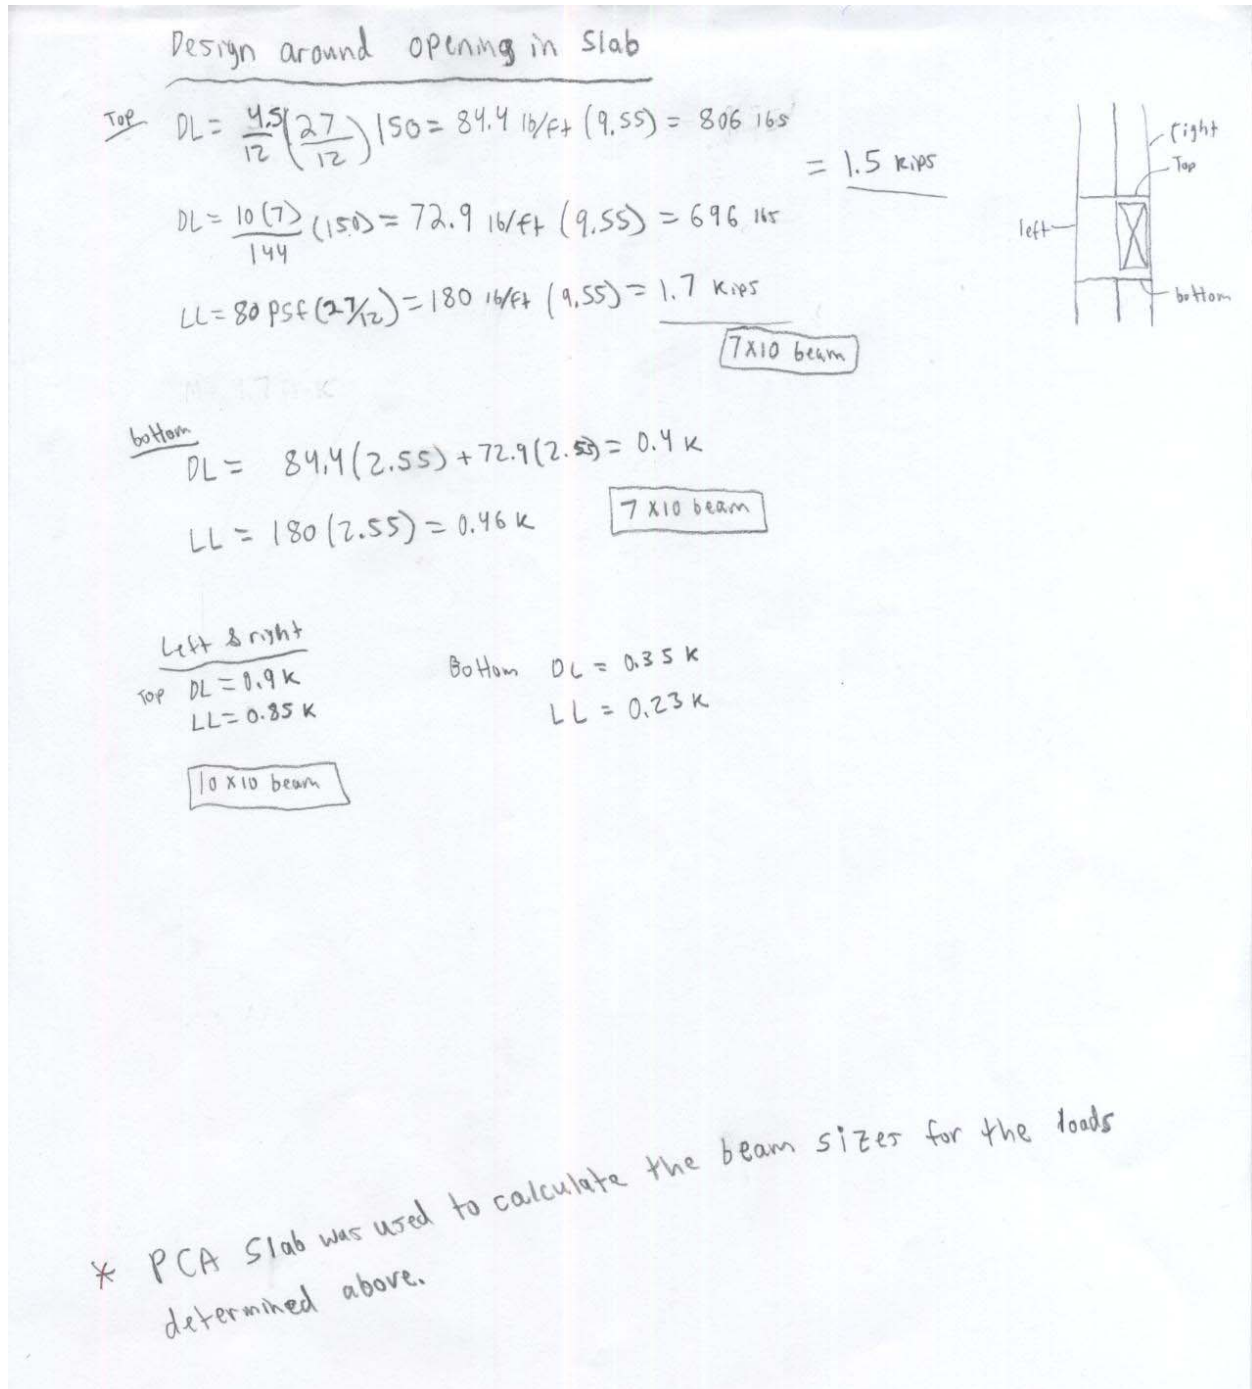 Design around opening in Slab
Top DL = 4.5/12 (27/12) 150 = 84.4 lb/ft (9.55) = 806 lbs
= 1.5 kips
DL = 10(7)/144 (150) = 72.9 lb/ft (9.55) = 696 lbs
LL = 80 psf (27/12) = 180 lb/ft (9.55) = 1.7 kips
7x10 beam
right
Top
left
bottom
bottom
DL = 84.4(2.55) + 72.9(2.55) = 0.4 K
LL = 180 (2.55) = 0.46 K
7x10 beam
Left & right
Top DL = 0.9 K
LL = 0.85 K
Bottom DL = 0.35 K
LL = 0.23 K
10x10 beam
* PCA Slab was used to calculate the beam sizes for the loads
determined above.